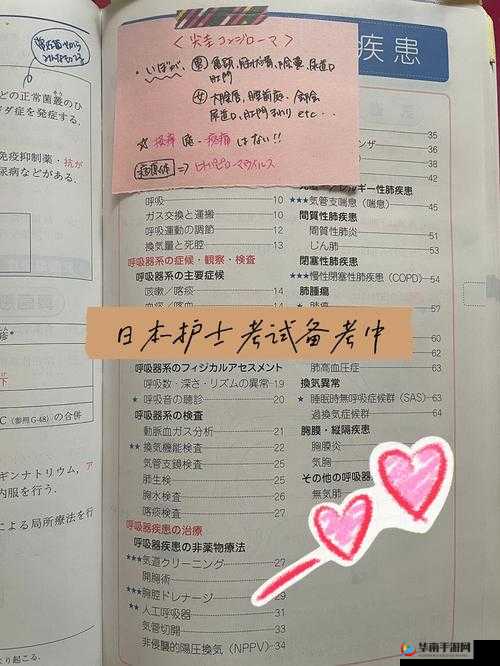 どの正常菌叢のひ
ダ症を発症する.
免疫抑制薬・抗が
尿病などがある.
C(参照G-48)の合併
ギンナトリウム, ア
内服を行う.
による局所療法を行
より起こる.
<尖圭コンジローマ>
・いぼが、
男
尿道口
肛門
女 大陰唇、腟前庭、会陰
尿道口、肛門まわり etc・・
☆ 掻痒感・疼痛はない!!
病原体 ⇒ ヒトパピローマウイルス
疾患
呼吸 10
ガス交換と運搬 10
呼吸運動の調節 12
換気量と死腔 13
呼吸器系の症候・観察・検査
呼吸器系の主要症候
咳嗽/喀痰 14
呼吸器系のフィジカルアセスメント
呼吸数・深さ・リズムの異常 19
★ 呼吸音の聴診 20
呼吸器系の検査
動脈血ガス分析 21
★★ 換気機能検査 22
気管支鏡検査 25
肺生検 25
胸水検査 26
喀痰検査 27
呼吸器疾患の治療
呼吸器疾患の非薬物療法
★★★ 気道クリーニング 27
開胸術
★★★ 胸腔ドレナージ 29
★★ 人工呼吸器 31
気管切開 33
非侵襲的陽圧換気(NPPV) 34
35
38
42
★★★ 気管支喘息(喘息) 45
間質性肺疾患
間質性肺炎 51
じん肺 53
閉塞性肺疾患
★★★ 慢性閉塞性肺疾患(COPD) 54
肺腫瘍
57
60
62
肺高血圧症 63
換気異常
★ 睡眠時無呼吸症候群(SAS) 63
過換気症候群 64
胸膜・縦隔疾患
胸膜炎
気胸
その他の呼吸器
無気肺
日本护士考试备考中
华南手游网